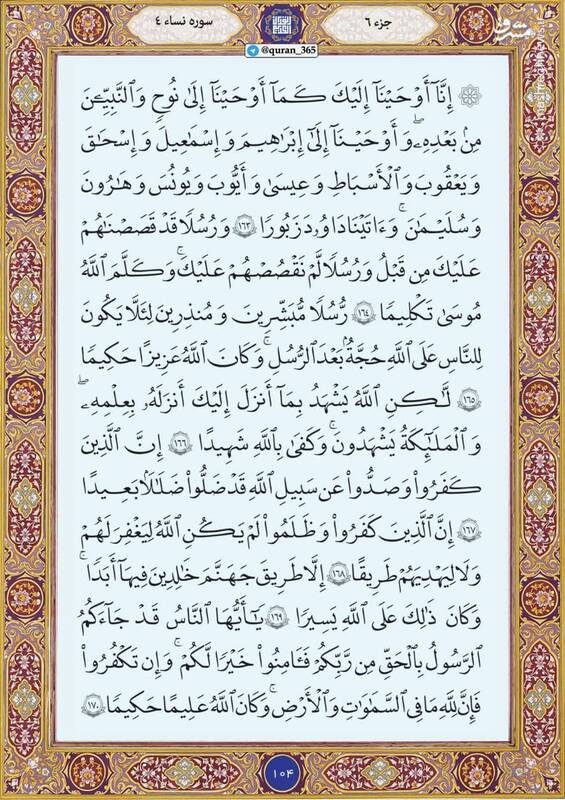 جزء ۶
سوره نساء ۴
@quran_365
إِنَّآ أَوْحَيْنَآ إِلَيْكَ كَمَآ أَوْحَيْنَآ إِلَىٰ نُوحٍ وَٱلنَّبِيِّـۧنَ
مِنۢ بَعْدِهِۦ ۚ وَأَوْحَيْنَآ إِلَىٰٓ إِبْرَٰهِيمَ وَإِسْمَٰعِيلَ وَإِسْحَٰقَ
وَيَعْقُوبَ وَٱلْأَسْبَاطِ وَعِيسَىٰ وَأَيُّوبَ وَيُونُسَ وَهَٰرُونَ
وَسُلَيْمَٰنَ ۚ وَءَاتَيْنَا دَاوُۥدَ زَبُورًا ١٦٣ وَرُسُلًا قَدْ قَصَصْنَٰهُمْ
عَلَيْكَ مِن قَبْلُ وَرُسُلًا لَّمْ نَقْصُصْهُمْ عَلَيْكَ ۚ وَكَلَّمَ ٱللَّهُ
مُوسَىٰ تَكْلِيمًا ١٦٤ رُّسُلًا مُّبَشِّرِينَ وَمُنذِرِينَ لِئَلَّا يَكُونَ
لِلنَّاسِ عَلَى ٱللَّهِ حُجَّةٌۢ بَعْدَ ٱلرُّسُلِ ۚ وَكَانَ ٱللَّهُ عَزِيزًا حَكِيمًا
١٦٥ لَّٰكِنِ ٱللَّهُ يَشْهَدُ بِمَآ أَنزَلَ إِلَيْكَ ۖ أَنزَلَهُۥ بِعِلْمِهِۦ ۖ
وَٱلْمَلَٰٓئِكَةُ يَشْهَدُونَ ۚ وَكَفَىٰ بِٱللَّهِ شَهِيدًا ١٦٦ إِنَّ ٱلَّذِينَ
كَفَرُوا۟ وَصَدُّوا۟ عَن سَبِيلِ ٱللَّهِ قَدْ ضَلُّوا۟ ضَلَٰلًۢا بَعِيدًا
١٦٧ إِنَّ ٱلَّذِينَ كَفَرُوا۟ وَظَلَمُوا۟ لَمْ يَكُنِ ٱللَّهُ لِيَغْفِرَ لَهُمْ
وَلَا لِيَهْدِيَهُمْ طَرِيقًا ١٦٨ إِلَّا طَرِيقَ جَهَنَّمَ خَٰلِدِينَ فِيهَآ أَبَدًا ۚ
وَكَانَ ذَٰلِكَ عَلَى ٱللَّهِ يَسِيرًا ١٦٩ يَٰٓأَيُّهَا ٱلنَّاسُ قَدْ جَآءَكُمُ
ٱلرَّسُولُ بِٱلْحَقِّ مِن رَّبِّكُمْ فَـَٔامِنُوا۟ خَيْرًا لَّكُمْ ۚ وَإِن تَكْفُرُوا۟
فَإِنَّ لِلَّهِ مَا فِى ٱلسَّمَٰوَٰتِ وَٱلْأَرْضِ ۚ وَكَانَ ٱللَّهُ عَلِيمًا حَكِيمًا ١٧٠
۱۰۴